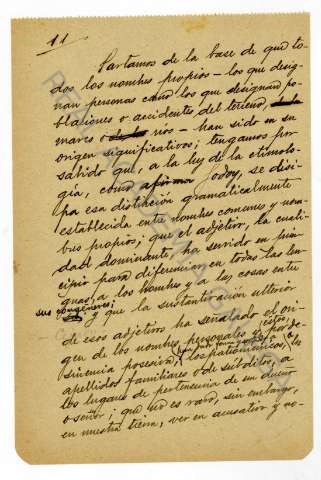 11
Partamos de la base de que to-
dos los nombres propios – los que desig-
nan personas como los que designan po-
blaciones o accidentes del terreno,
mares o rios – han sido en su
origen significativos; tengamos por
sabido que, a la luz de la etimolo-
gía, como afirma Godoy, se disi-
pa esa distinción gramaticalmente
establecida entre nombres comunes y nom-
bres propios; que el adjetivo, la cuali-
dad dominante, ha servido en prin-
cipio para diferenciar en todas las len-
guas, a los hombres y a las cosas entre
sus congéneres; y que la sustantivación ulterior
de esos adjetivos ha señalado el ori-
gen de los nombres personales y estos, por de-
sinencia posesiva, (los patronímicos) a los
apellidos familiares o de súbditos, a
los lugares de pertenencia de un dueño
o señor; que no es raro, sin embargo,
en nuestra tierra, ver en acusativo y no-